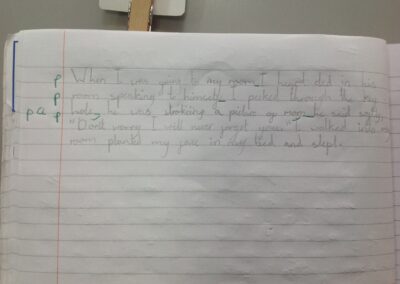 p When I was going to my room_I heard dad in his
p room speaking to himself_ I peeked through the key
p a p hole, he was stroking a picture of mom_ he said softly,
"Dont worry I will never forget you." I walked into my
room planted my face in my bed and slept.